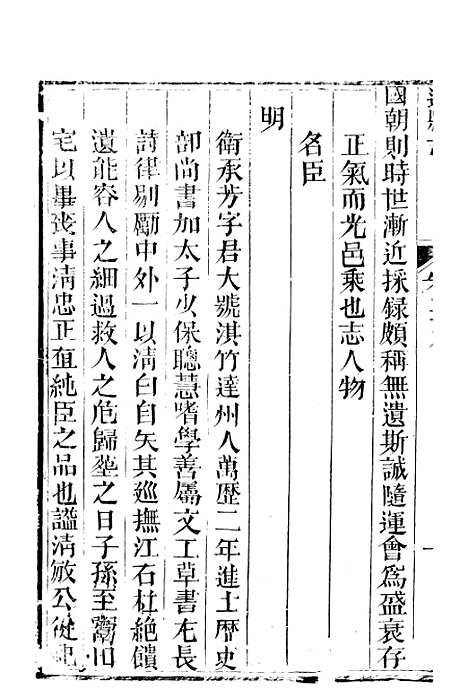 國朝則時世漸近採録頗稱無遺斯誠隨運會爲盛衰存
正氣而光邑乘也志人物
名臣
明
衛承芳字君大號淇竹達州人萬歴二年進士歴吏
部尚書加太子少保聰慧嗜學善屬文工草書尤長
詩律剔勵中外一以淸白自矢其巡撫江右杜絶饋
遺能容人之細過救人之危歸塟之日子孫至鬻田
宅以畢喪事淸忠正直純臣之品也謚淸敏公從祀